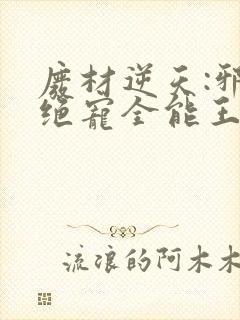 废材逆天:邪
绝宠全能王
流浪的阿木木